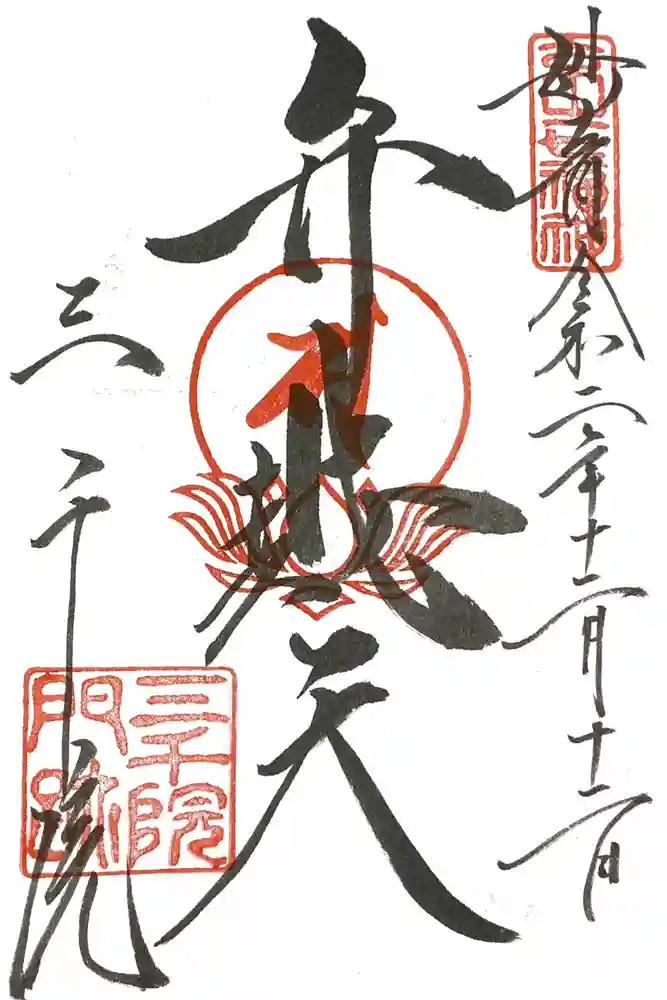 妙音 令和二年十二月十二日
七福神
弁財天
三千院
三千院
門跡